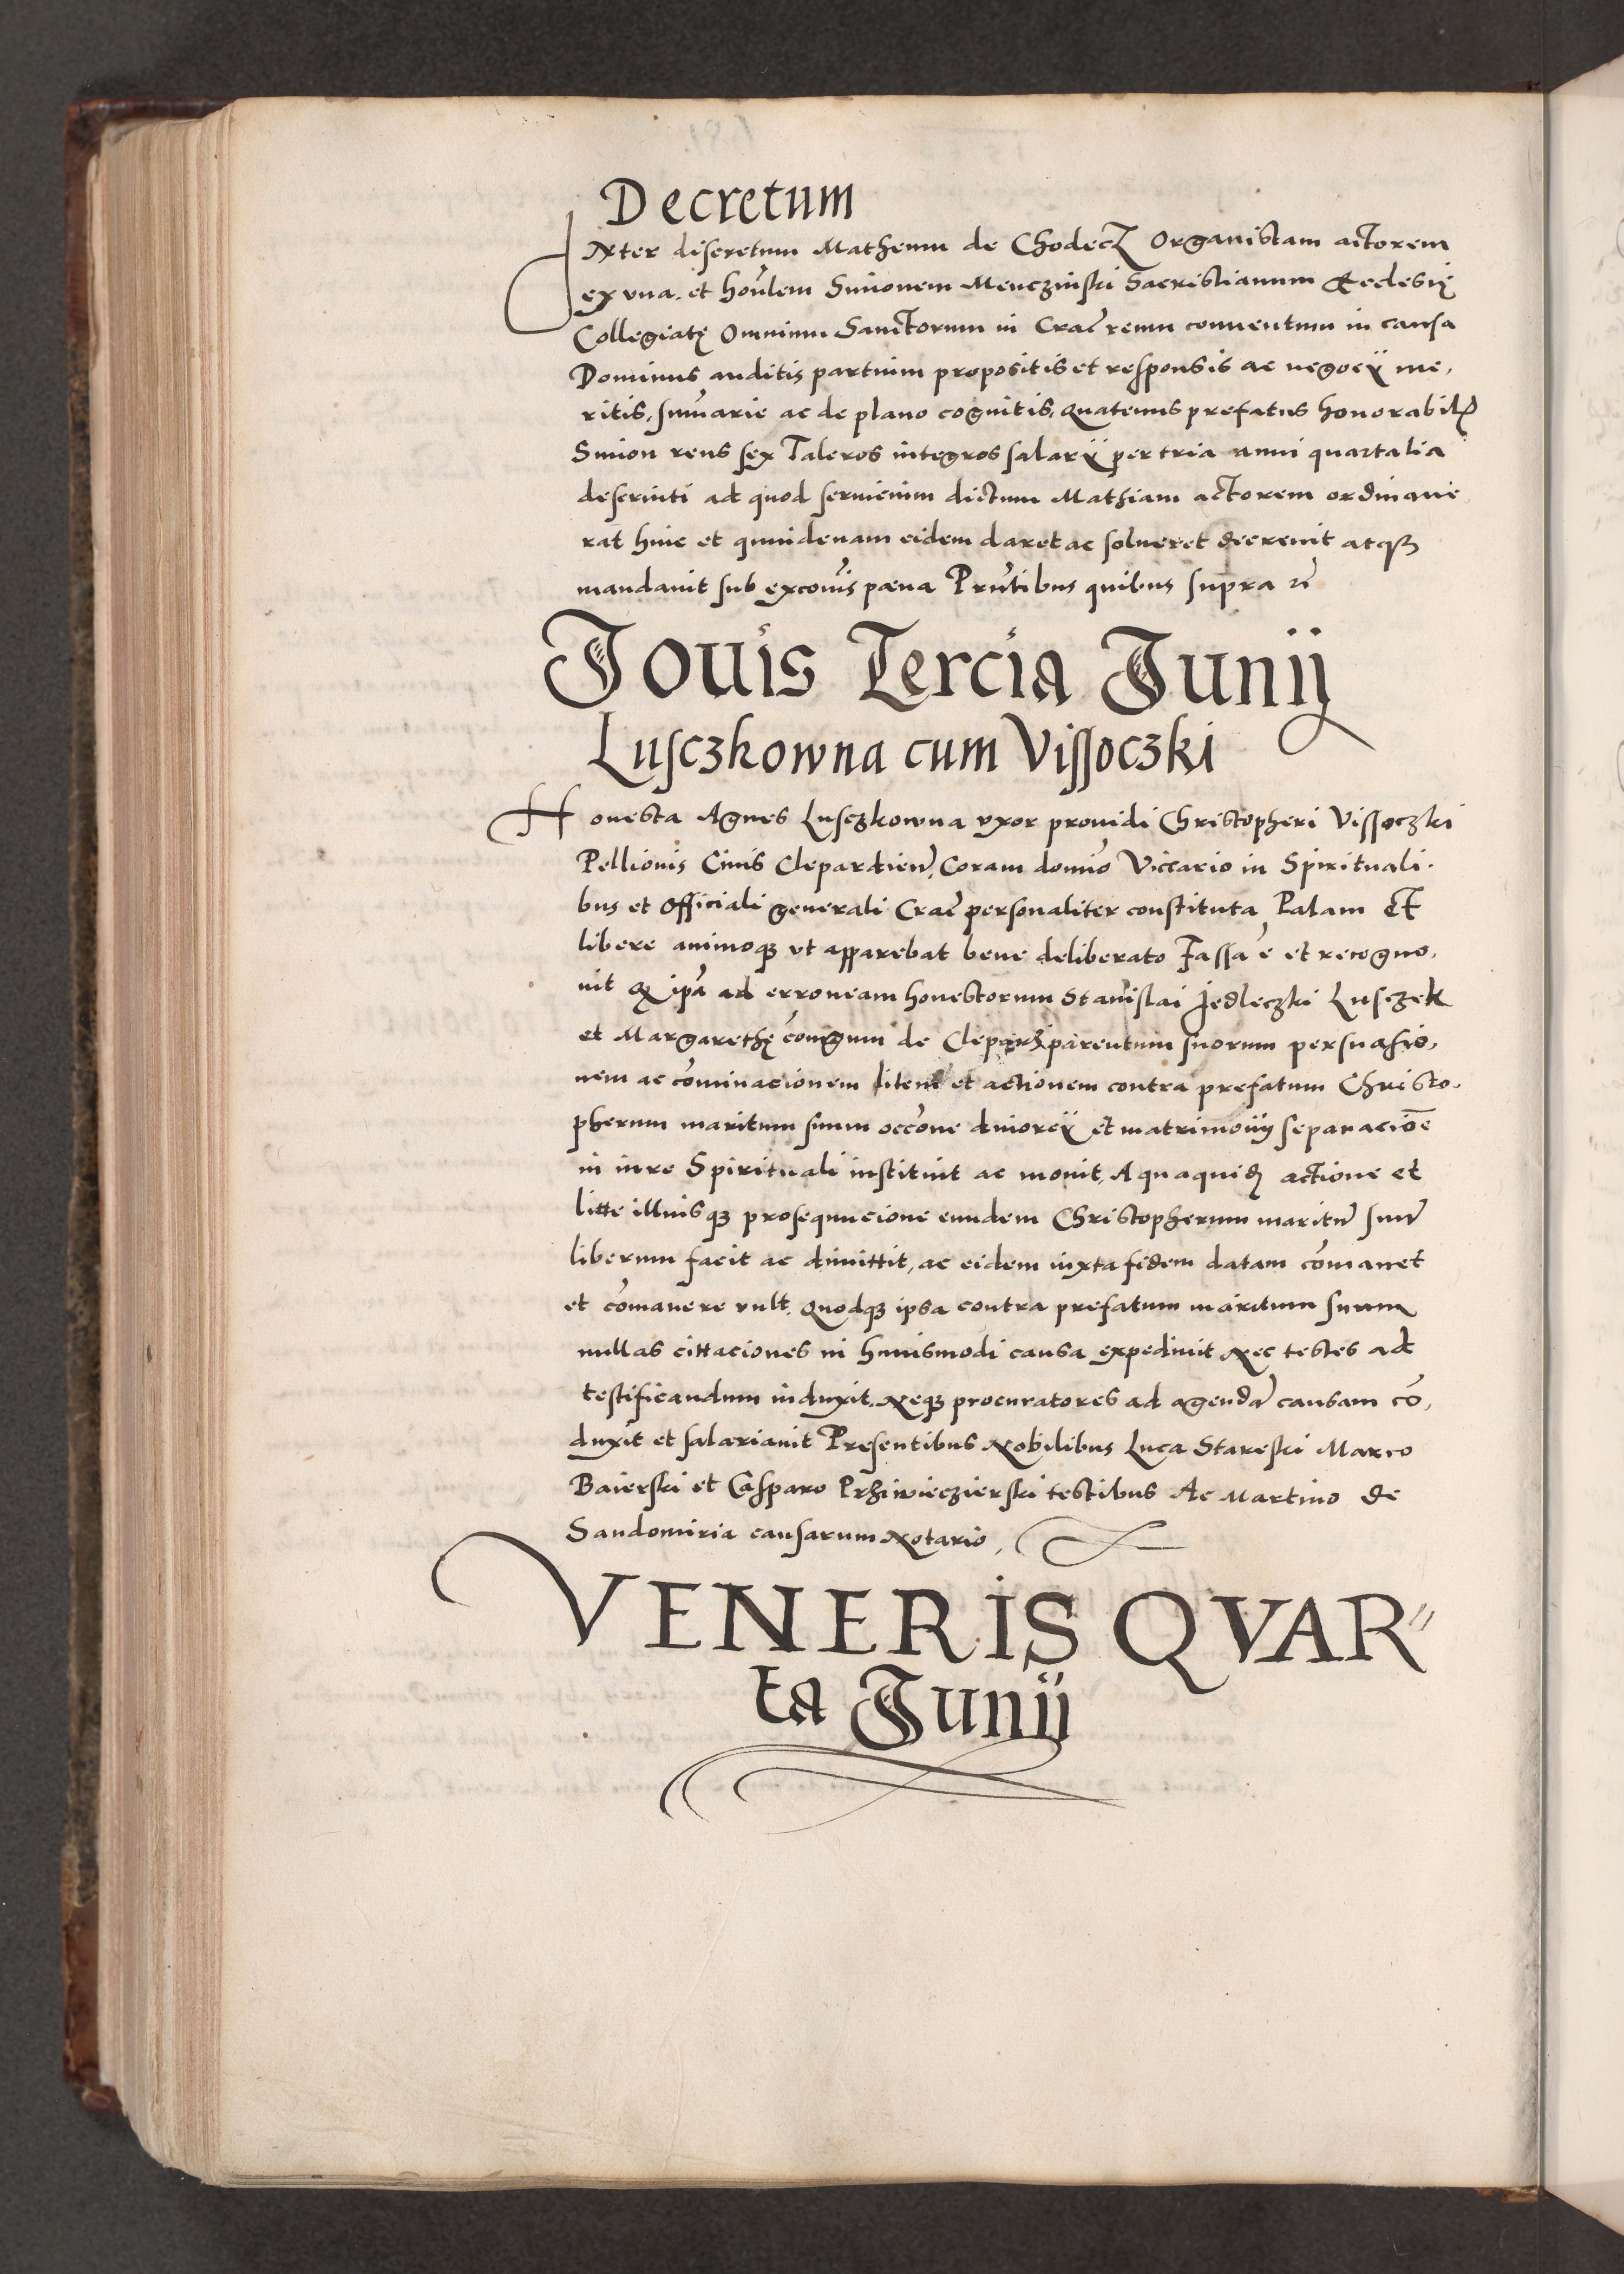 Decretum
Inter discretum Mathiam de Chodecz Organistam actorem
ex vna, et honlem Simonem Menczinski Sacristianum Ecclesię
Collegiatę Omnium Sanctorum in Crac reum conuentum in causa
Dominus auditis partium propositis et responsis ac negocij me,
ritis, sumarie ac de plano cognitis, Quatenus prefatus honorabilis
Simon reus sex Taleros integros salarij per tria anni quartalia
deseruiti ad quod seruicium dictum Mathiam actorem ordinaue
rat hinc et quindenam eidem daret ac solueret decreuit atqꝫ
mandauit sub excoīs pæna Pntibus quibus supra
Jouis Tercia Junij
Lusczkowna cum Vissoczki
Honesta Agnes Lusczkowna vxor prouidi Christopheri Vissoczki
Pellionis Ciuis Clepardien, Coram domīo Viccario in Spirituali-
bus et Officiali generali Crac personaliter constituta Palam Et
libere animoqꝫ vt apparebat bene deliberato Fassa ē et recogno,
uit Qz ipā ad erroneam honestorum Stanislai Jedleczki Lusczek
et Margarethę cōngum de Cleparz parentum suorum persuasio,
nem ac cōminacionem litem et actionem contra prefatum Christo-
pherum maritum suum occōne diuorcij et matrimonij separaciōē
in iure Spirituali instituit ac mouit, A quaquidē actione et
litte illiusqꝫ prosequucione eundem Christopherum maritū suū
liberum facit ac dimittit, ac eidem iuxta fidem datam cōmanet
et cōmanere vult, Quodqꝫ ipsa contra prefatum maritum suum
nullas cittaciones in huiusmodi causa expediuit Nec testes ad
testificandum induxit, Neqꝫ procuratores ad agendā causam cō,
duxit et salariauit Presentibus Nobilibus Luca Stareski Marco
Baierski et Casparo Przi­wieczierski testibus Ac Martino de
Sandomiria causarum Notario,
VENERIS QVAR"
ta Junij